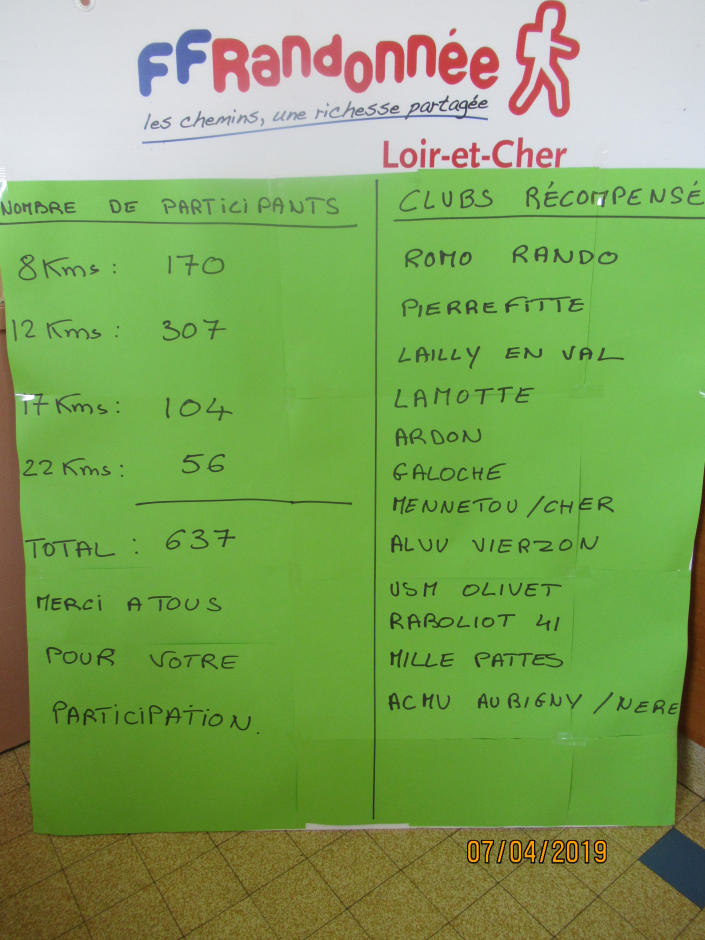 FFRandonnée
les chemins, une richesse partagée
Loir-et-Cher
NOMBRE DE PARTICIPANTS
8 Kms : 170
12 Kms : 307
17 Kms : 104
22 Kms : 56
TOTAL : 637
MERCI A TOUS
POUR VOTRE
PARTICIPATION.
CLUBS RÉCOMPENSÉ
ROMO RANDO
PIERREFITTE
LAILLY EN VAL
LAMOTTE
ARDON
GALOCHE
MENNETOU/CHER
ALVV VIERZON
USM OLIVET
RABOLIOT 41
MILLE PATTES
ACMV AUBIGNY /NERE
07/04/2019